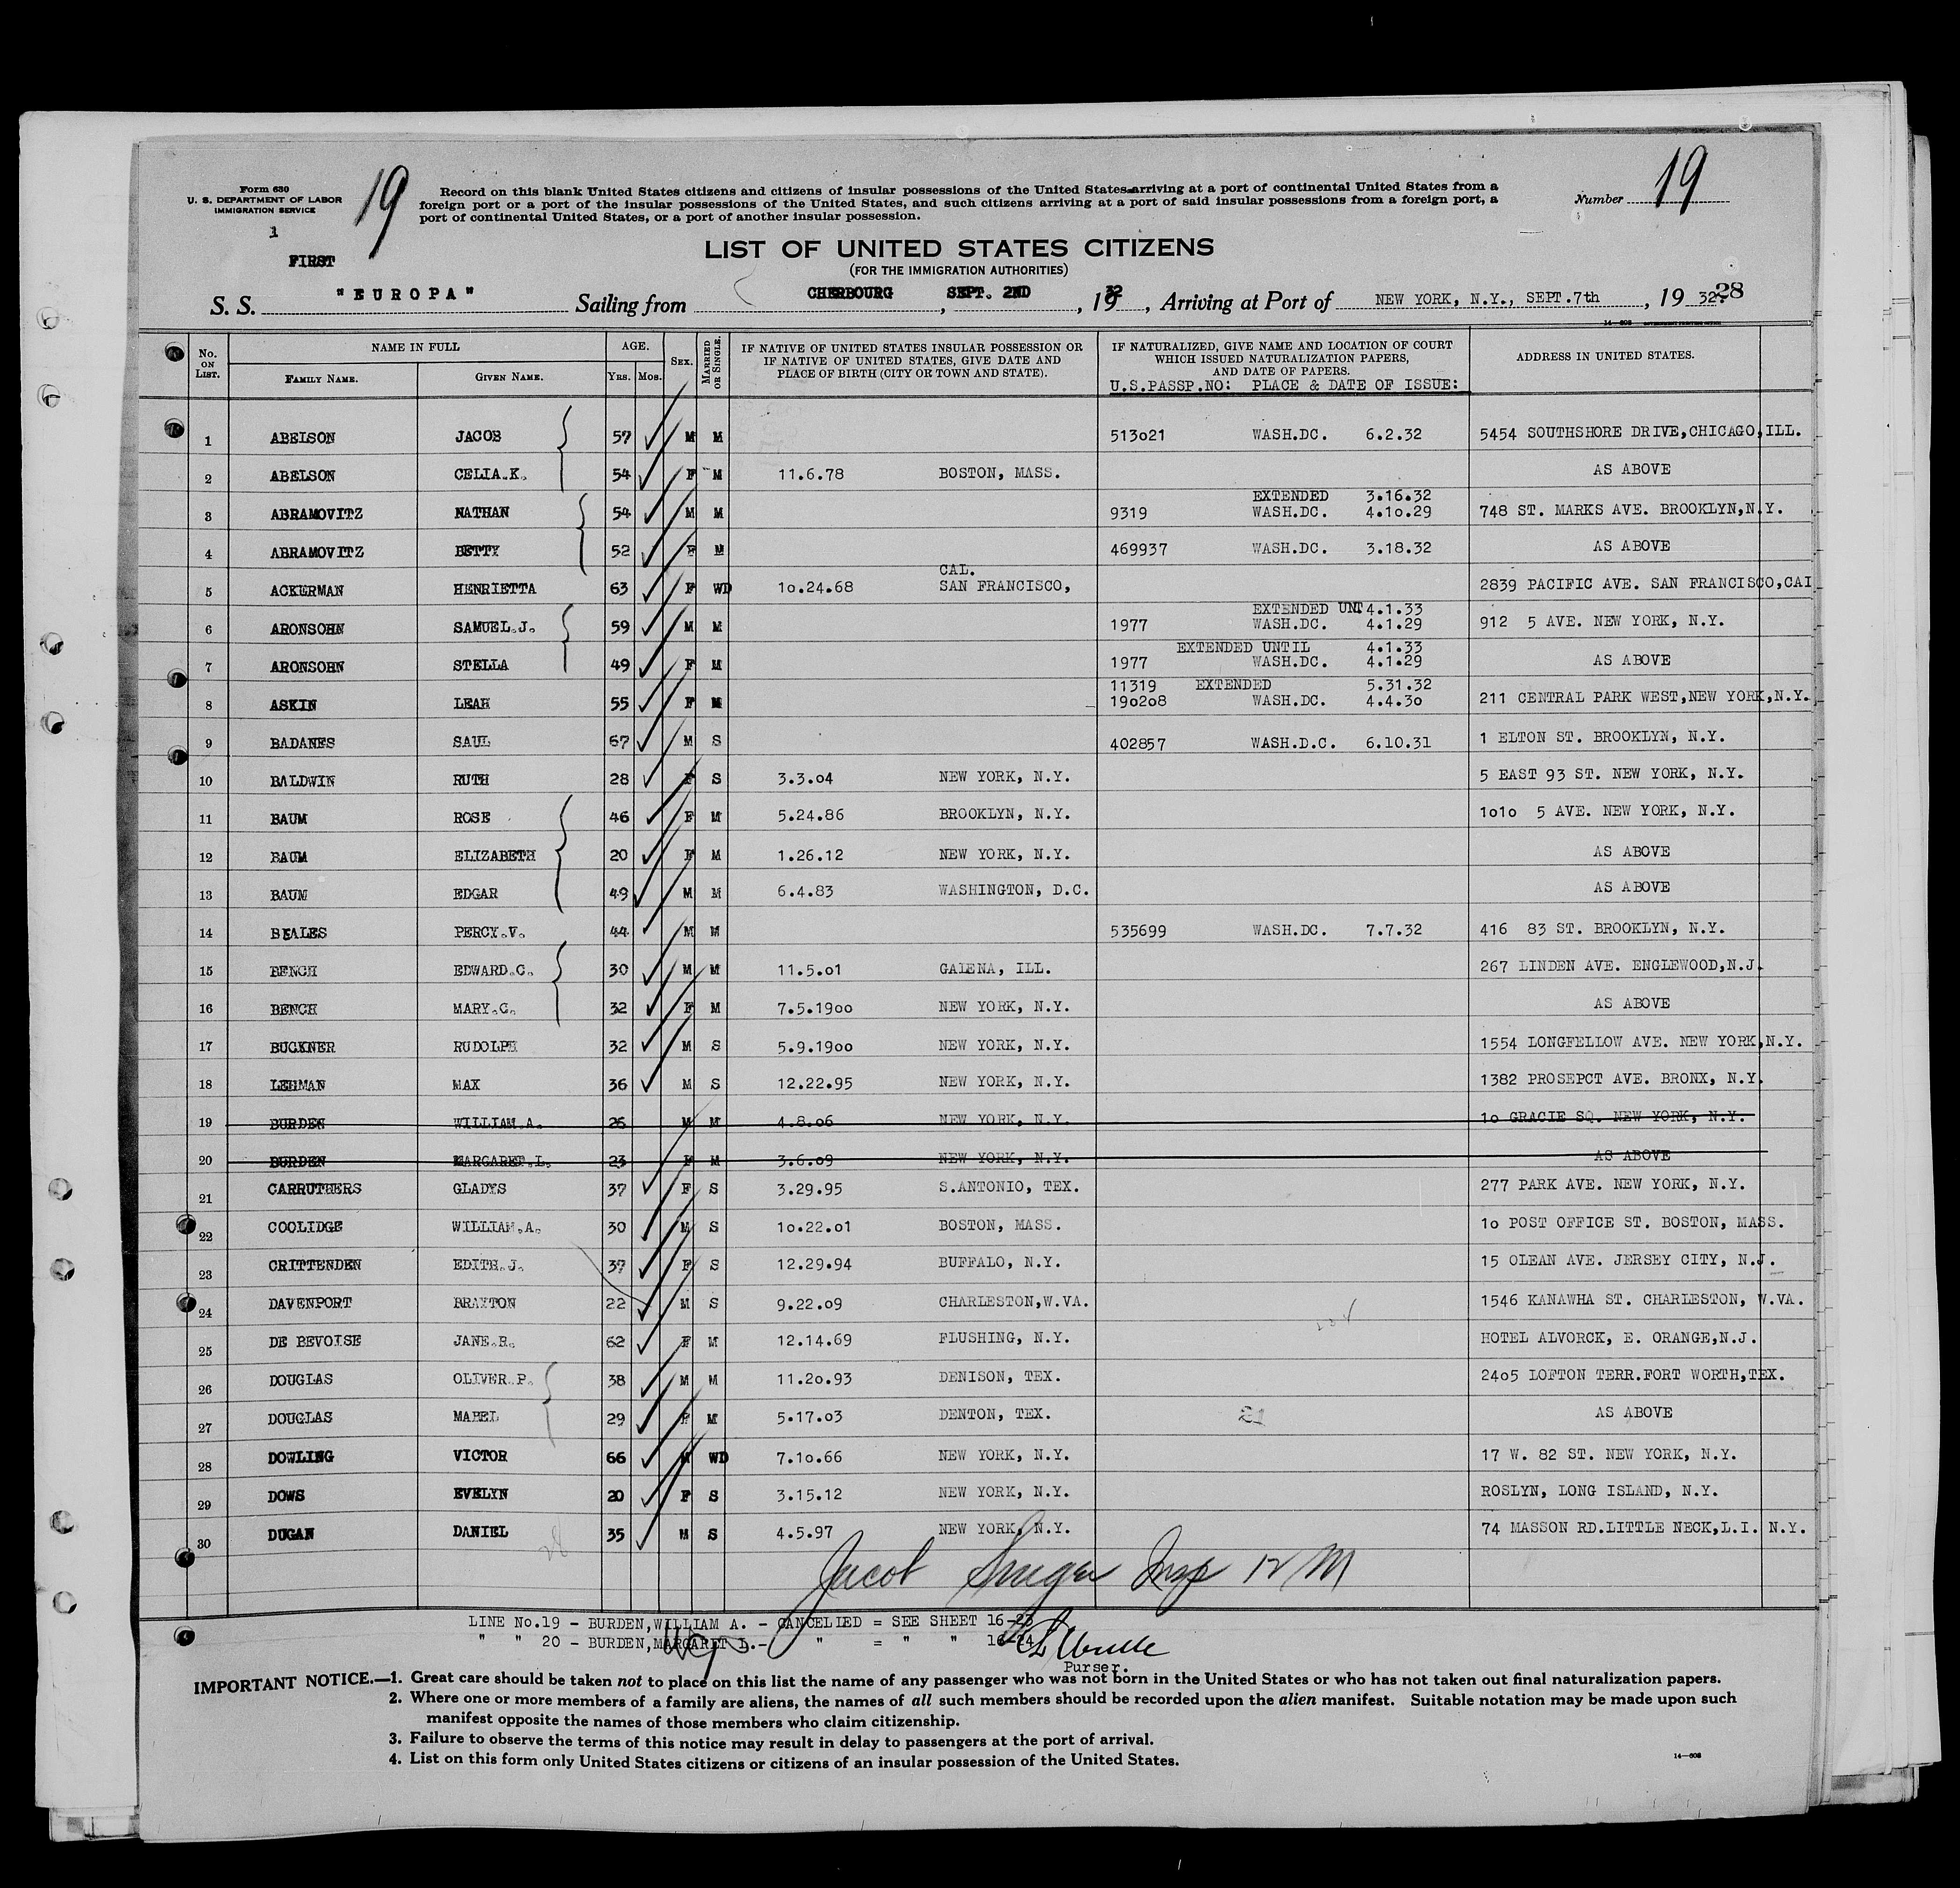 Form 630
U. S. DEPARTMENT OF LABOR
IMMIGRATION SERVICE
1
FIRST
19
Record on this blank United States citizens and citizens of insular possessions of the United States arriving at a port of continental United States from a
foreign port or a port of the insular possessions of the United States, and such citizens arriving at a port of said insular possessions from a foreign port, a
port of continental United States, or a port of another insular possession.
Number 19
LIST OF UNITED STATES CITIZENS
(FOR THE IMMIGRATION AUTHORITIES)
S. S. "EUROPA" Sailing from CHERBOURG, SEPT. 2ND, 1932, Arriving at Port of NEW YORK, N.Y., SEPT.7th, 19 32. 28
No. ON LIST. NAME IN FULL FAMILY NAME. GIVEN NAME. AGE. YRS. MOS. SEX. MARRIED OR SINGLE. IF NATIVE OF UNITED STATES INSULAR POSSESSION OR IF NATIVE OF UNITED STATES, GIVE DATE AND PLACE OF BIRTH (CITY OR TOWN AND STATE). IF NATURALIZED, GIVE NAME AND LOCATION OF COURT WHICH ISSUED NATURALIZATION PAPERS, AND DATE OF PAPERS. ADDRESS IN UNITED STATES.
U.S.PASSP.NO: PLACE & DATE OF ISSUE:
1 ABELSON JACOB 57 M M 513o21 WASH.DC. 6.2.32 5454 SOUTHSHORE DRIVE,CHICAGO,ILL.
2 ABELSON CELIA.K. 54 F M 11.6.78 BOSTON, MASS. AS ABOVE
EXTENDED 3.16.32
3 ABRAMOVITZ NATHAN 54 M M 9319 WASH.DC. 4.1o.29 748 ST. MARKS AVE. BROOKLYN,N.Y.
4 ABRAMOVITZ BETTY 52 F M 469937 WASH.DC. 3.18.32 AS ABOVE
CAL.
5 ACKERMAN HENRIETTA 63 F WD 1o.24.68 SAN FRANCISCO, 2839 PACIFIC AVE. SAN FRANCISCO,CAL
EXTENDED UNT 4.1.33
6 ARONSOHN SAMUEL.J. 59 M M 1977 WASH.DC. 4.1.29 912 5 AVE. NEW YORK, N.Y.
EXTENDED UNTIL 4.1.33
7 ARONSOHN STELLA 49 F M 1977 WASH.DC. 4.1.29 AS ABOVE
11319 EXTENDED 5.31.32
8 ASKIN LEAH 55 F M 19o2o8 WASH.DC. 4.4.3o 211 CENTRAL PARK WEST,NEW YORK,N.Y.
9 BADANES SAUL 67 M S 402857 WASH.D.C. 6.10.31 1 ELTON ST. BROOKLYN, N.Y.
10 BALDWIN RUTH 28 F S 3.3.o4 NEW YORK, N.Y. 5 EAST 93 ST. NEW YORK, N.Y.
11 BAUM ROSE 46 F M 5.24.86 BROOKLYN, N.Y. 1o1o 5 AVE. NEW YORK, N.Y.
12 BAUM ELIZABETH 20 F M 1.26.12 NEW YORK, N.Y. AS ABOVE
13 BAUM EDGAR 49 M M 6.4.83 WASHINGTON, D.C. AS ABOVE
14 BEALES PERCY.V. 44 M M 535699 WASH.DC. 7.7.32 416 83 ST. BROOKLYN, N.Y.
15 BENCH EDWARD.C. 30 M M 11.5.o1 GALENA, ILL. 267 LINDEN AVE. ENGLEWOOD,N.J.
16 BENCH MARY.C. 32 F M 7.5.19oo NEW YORK, N.Y. AS ABOVE
17 BUCKNER RUDOLPH 32 M S 5.9.19oo NEW YORK, N.Y. 1554 LONGFELLOW AVE. NEW YORK,N.Y.
18 LEHMAN MAX 36 M S 12.22.95 NEW YORK, N.Y. 1382 PROSEPCT AVE. BRONX, N.Y.
19 BURDEN WILLIAM.A. 26 M M 4.8.o6 NEW YORK, N.Y. 1o GRACIE SQ. NEW YORK, N.Y.
20 BURDEN MARGARET.L. 23 F M 3.6.o9 NEW YORK, N.Y. AS ABOVE
21 CARRUTHERS GLADYS 37 F S 3.29.95 S.ANTONIO, TEX. 277 PARK AVE. NEW YORK, N.Y.
22 COOLIDGE WILLIAM.A. 30 M S 1o.22.o1 BOSTON, MASS. 1o POST OFFICE ST. BOSTON, MASS.
23 CRITTENDEN EDITH.J. 37 F S 12.29.94 BUFFALO, N.Y. 15 OLEAN AVE. JERSEY CITY, N.J.
24 DAVENPORT BRAXTON 22 M S 9.22.o9 CHARLESTON,W.VA. 1546 KANAWHA ST. CHARLESTON, W.VA.
25 DE BEVOISE JANE.R. 62 F M 12.14.69 FLUSHING, N.Y. HOTEL ALVORCK, E. ORANGE,N.J.
26 DOUGLAS OLIVER.P. 38 M M 11.2o.93 DENISON, TEX. 24o5 LOFTON TERR.FORT WORTH,TEX.
27 DOUGLAS MABEL 29 F M 5.17.o3 DENTON, TEX. 21 AS ABOVE
28 DOWLING VICTOR 66 M WD 7.1o.66 NEW YORK, N.Y. 17 W. 82 ST. NEW YORK, N.Y.
29 DOWS EVELYN 20 F S 3.15.12 NEW YORK, N.Y. ROSLYN, LONG ISLAND, N.Y.
30 DUGAN DANIEL 35 M S 4.5.97 NEW YORK, N.Y. 74 MASSON RD.LITTLE NECK,L.I. N.Y.
28
Jacob Insp 12 M
LINE No.19 - BURDEN,WILLIAM A. - CANCELLED = SEE SHEET 16-23
" " 20 - BURDEN,MARGARET L.- " = " " 16-24
Purser.
IMPORTANT NOTICE.—1. Great care should be taken not to place on this list the name of any passenger who was not born in the United States or who has not taken out final naturalization papers.
2. Where one or more members of a family are aliens, the names of all such members should be recorded upon the alien manifest. Suitable notation may be made upon such
manifest opposite the names of those members who claim citizenship.
3. Failure to observe the terms of this notice may result in delay to passengers at the port of arrival.
4. List on this form only United States citizens or citizens of an insular possession of the United States.
14—608